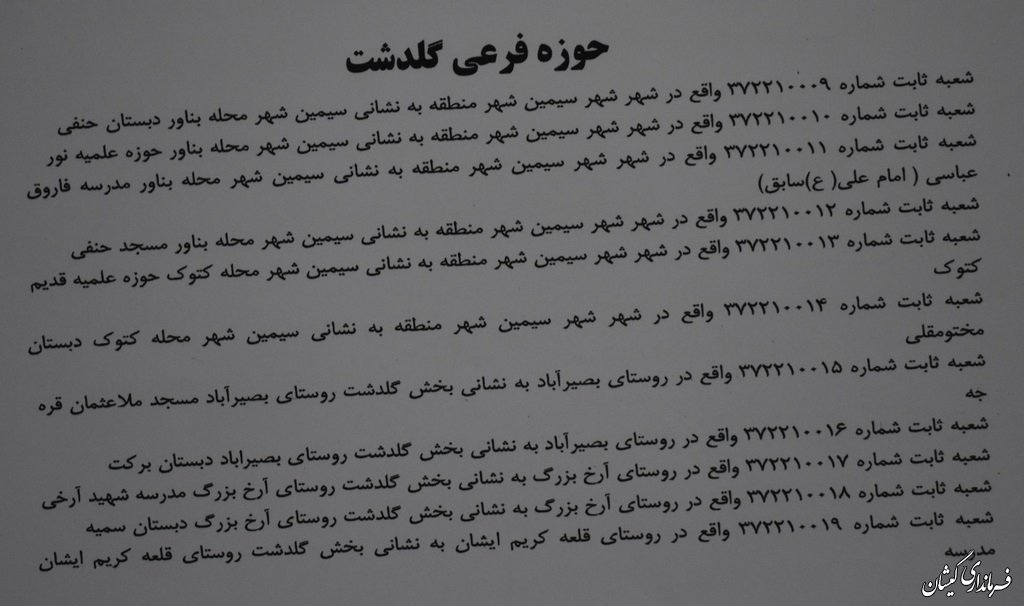 حوزه فرعی گلدشت
شعبه ثابت شماره ۳۷۲۲۱۰۰۰۹ واقع در شهر شهر سیمین شهر منطقه به نشانی سیمین شهر محله بناور دبستان حنفی
شعبه ثابت شماره ۳۷۲۲۱۰۰۱۰ واقع در شهر شهر سیمین شهر منطقه به نشانی سیمین شهر محله بناور حوزه علمیه نور
شعبه ثابت شماره ۳۷۲۲۱۰۰۱۱ واقع در شهر شهر سیمین شهر منطقه به نشانی سیمین شهر محله بناور مدرسه فاروق
عباسی ( امام علی( ع)سابق)
شعبه ثابت شماره ۳۷۲۲۱۰۰۱۲ واقع در شهر شهر سیمین شهر منطقه به نشانی سیمین شهر محله بناور مسجد حنفی
شعبه ثابت شماره ۳۷۲۲۱۰۰۱۳ واقع در شهر شهر سیمین شهر منطقه به نشانی سیمین شهر محله کتوک حوزه علمیه قدیم
کتوک
شعبه ثابت شماره ۳۷۲۲۱۰۰۱۴ واقع در شهر شهر سیمین شهر منطقه به نشانی سیمین شهر محله کتوک دبستان
مختومقلی
شعبه ثابت شماره ۳۷۲۲۱۰۰۱۵ واقع در روستای بصیرآباد به نشانی بخش گلدشت روستای بصیرآباد مسجد ملاعثمان قره
جه
شعبه ثابت شماره ۳۷۲۲۱۰۰۱۶ واقع در روستای بصیرآباد به نشانی بخش گلدشت روستای بصیراباد دبستان برکت
شعبه ثابت شماره ۳۷۲۲۱۰۰۱۷ واقع در روستای آرخ بزرگ به نشانی بخش گلدشت روستای آرخ بزرگ مدرسه شهید آرخی
شعبه ثابت شماره ۳۷۲۲۱۰۰۱۸ واقع در روستای آرخ بزرگ به نشانی بخش گلدشت روستای آرخ بزرگ دبستان سمیه
شعبه ثابت شماره ۳۷۲۲۱۰۰۱۹ واقع در روستای قلعه کریم ایشان به نشانی بخش گلدشت روستای قلعه کریم ایشان
مدرسه
فرمانداری گمیشان